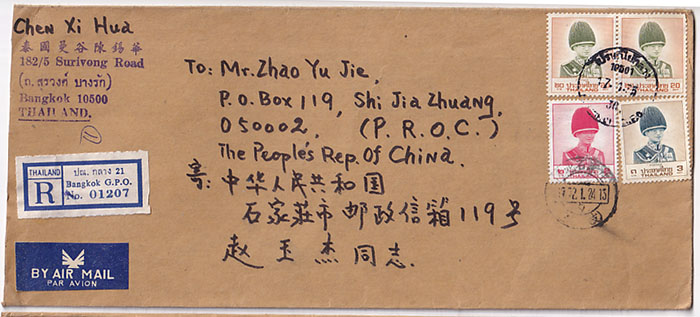 Chen Xi Hua
泰國曼谷陳錫華
182/5 Surivong Road
(ถ. สุรวงศ์ บางรัก)
Bangkok 10500
THAILAND.
THAILAND
ปณ. กลาง 21
R
Bangkok G.P.O.
No. 01207
BY AIR MAIL
PAR AVION
To: Mr. Zhao Yu Jie,
P.O. Box 119, Shi Jia Zhuang,
050002, (P.R.O.C.)
The People's Rep. Of China.
寄: 中华人民共和国
石家莊市邮政信箱119号
赵玉杰同志.
10501
๒๐ ประเทศไทย
ประเทศไทย 20
ประเทศไทย
THAILAND
๓ ประเทศไทย 3
THAILAND